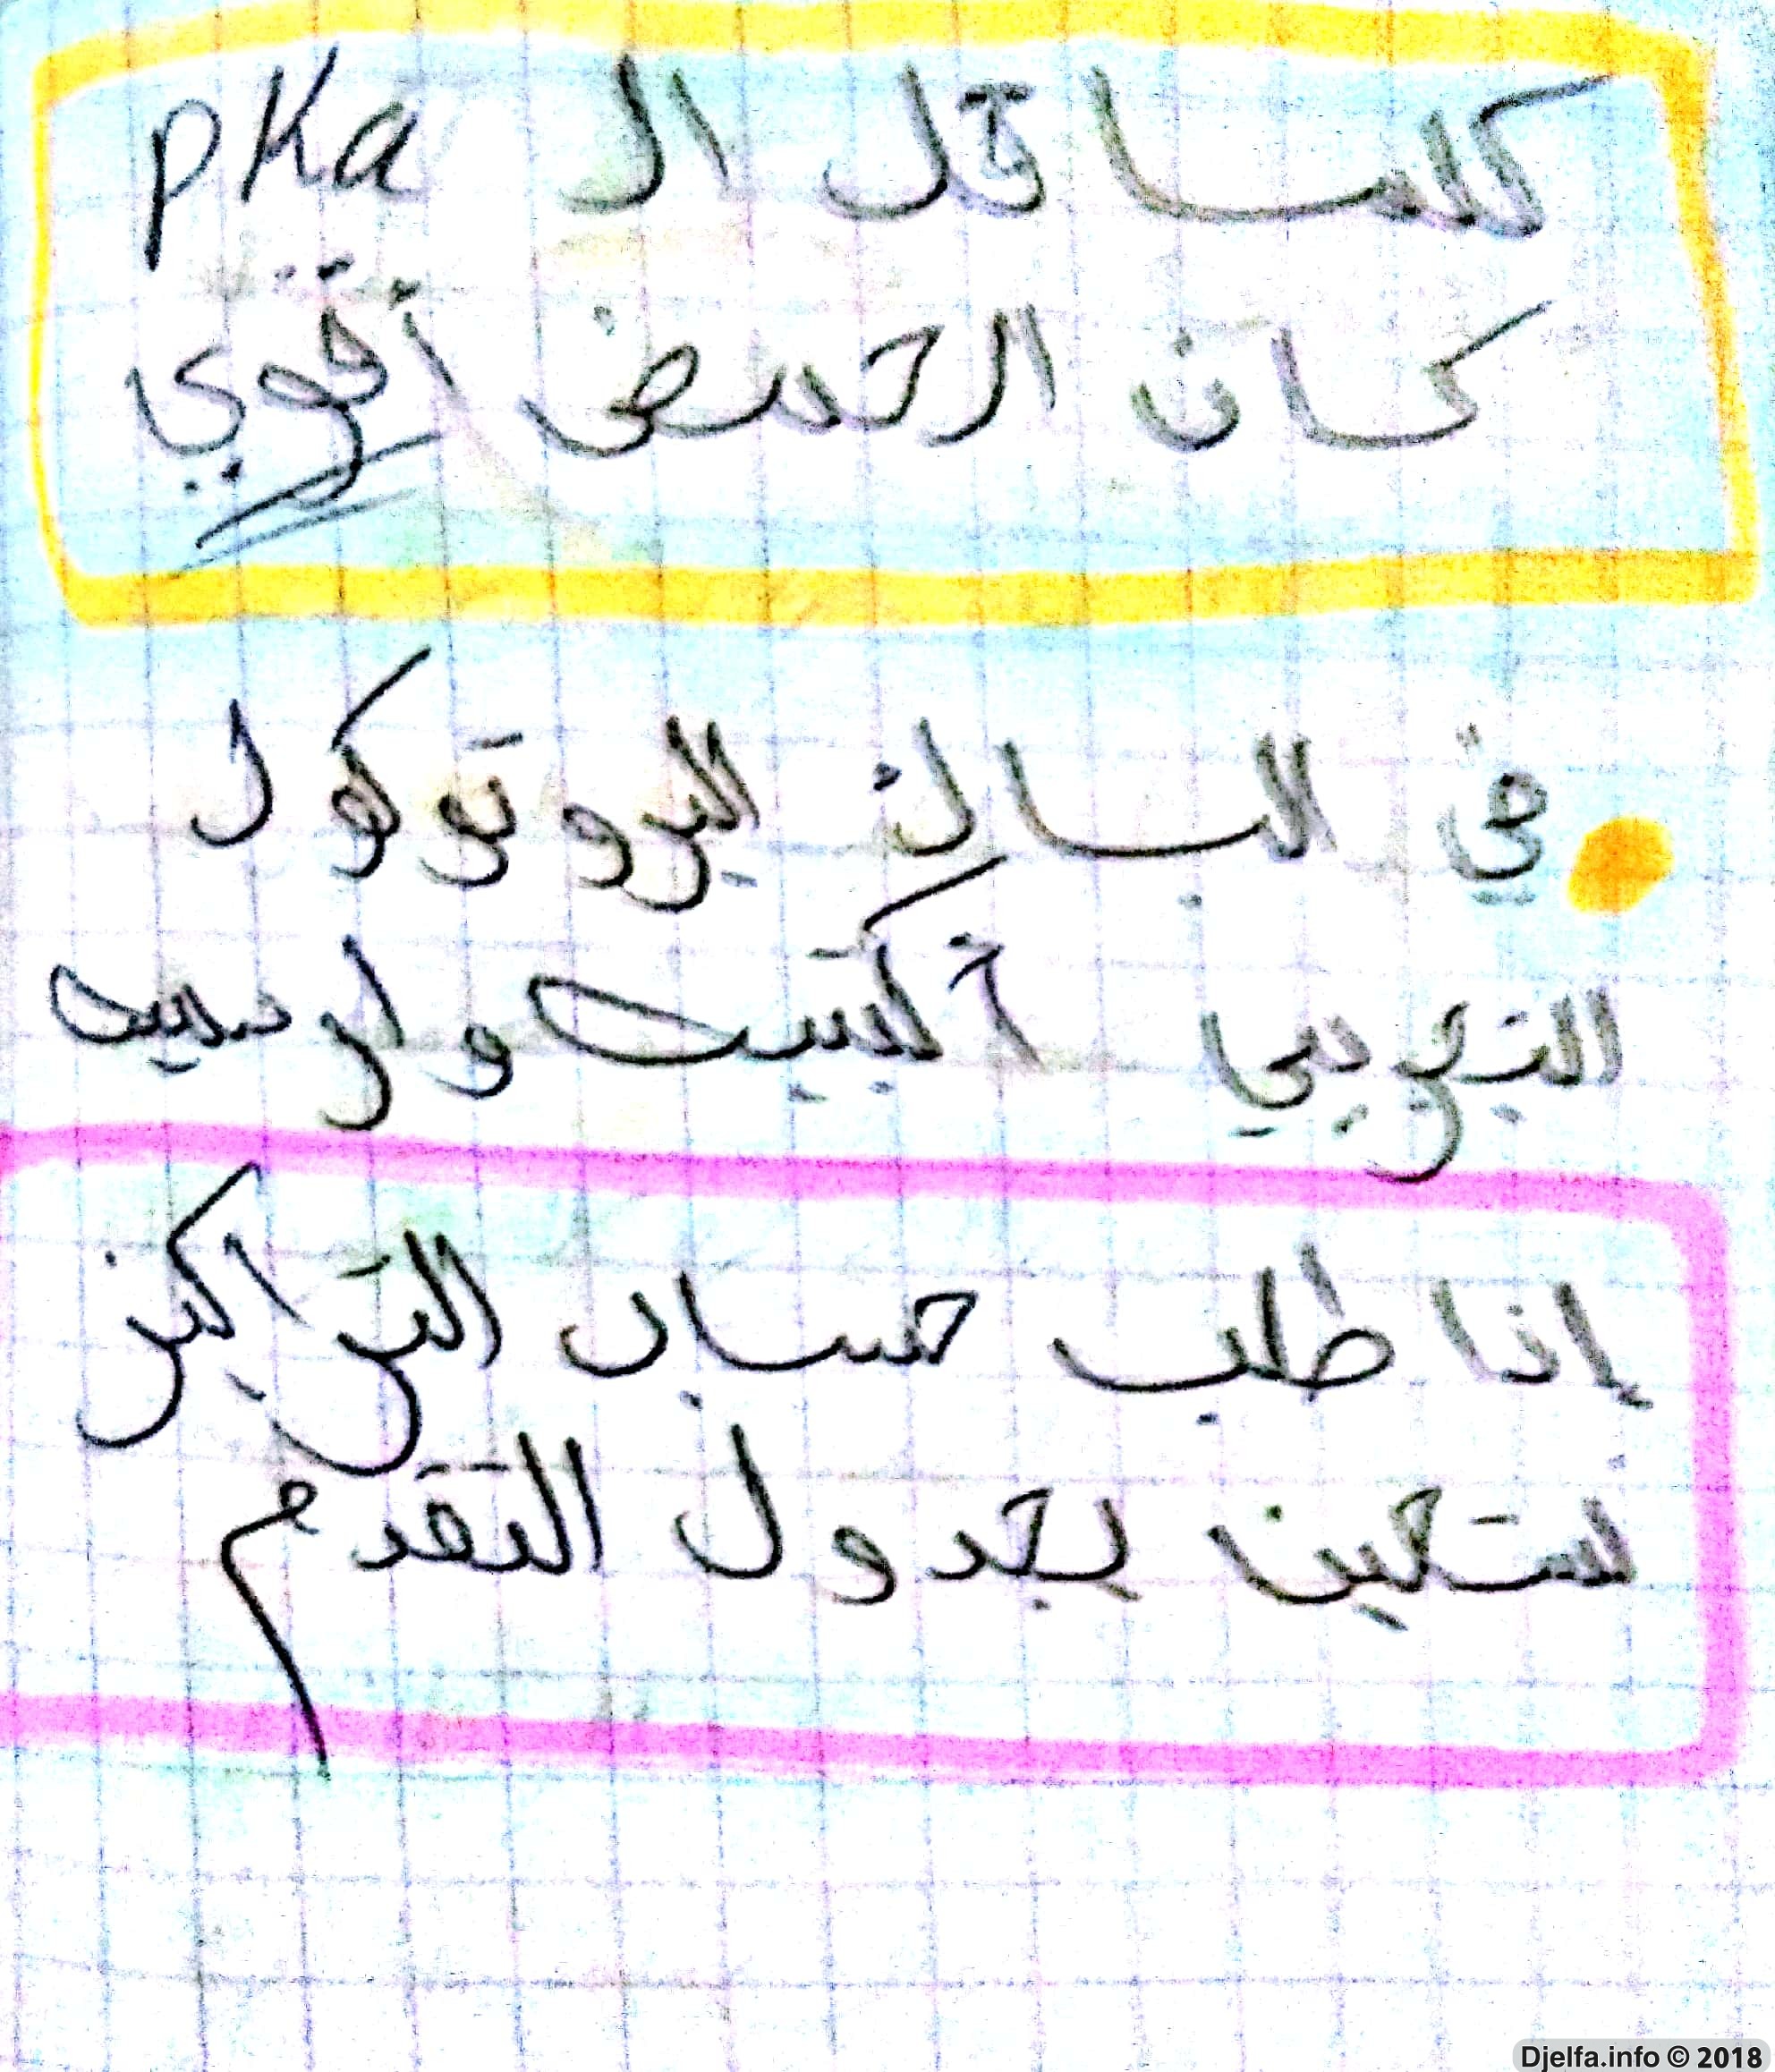 كلما قل ال pKa
كان الحمض أقوي
في الباك البروتوكول
التجريبي أكتبيه وارسميه
إذا طلب حساب التراكيز
نستعين بجدول التقدم
Djelfa.info © 2018